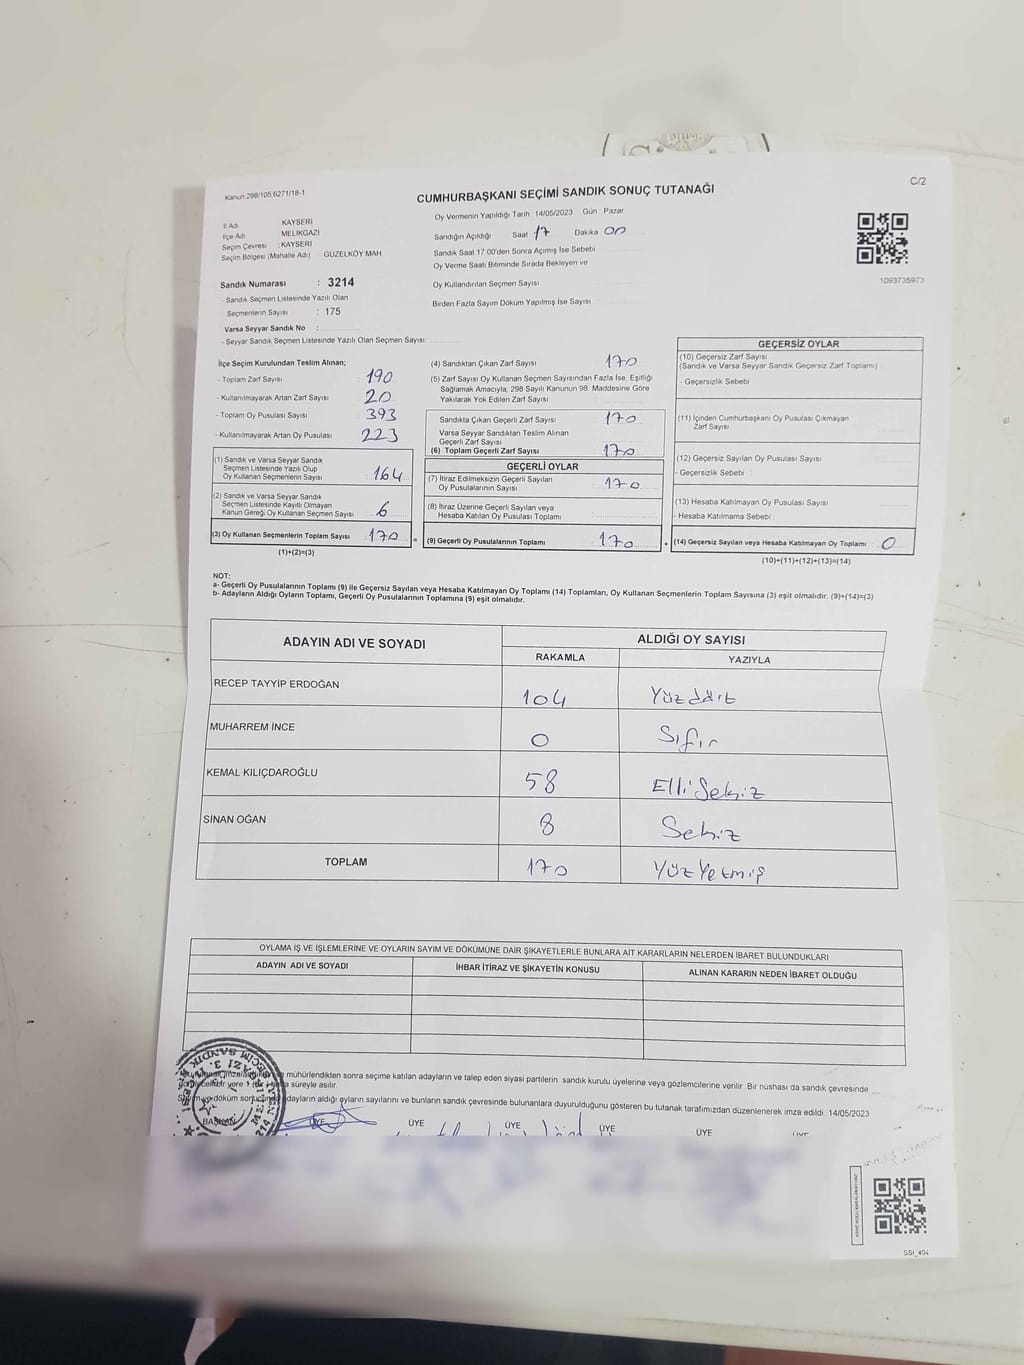 Kanun 298/105,6271/18-1
CUMHURBAŞKANI SEÇİMİ SANDIK SONUÇ TUTANAĞI
C/2
İl Adı KAYSERİ
İlçe Adı MELİKGAZİ
Seçim Çevresi : KAYSERİ
Seçim Bölgesi (Mahalle Adı) GÜZELKÖY MAH
Oy Vermenin Yapıldığı Tarih : 14/05/2023 Gün : Pazar
Sandığın Açıldığı Saat 17 Dakika 00
Sandık Saat 17:00'den Sonra Açılmış İse Sebebi
Oy Verme Saati Bitiminde Sırada Bekleyen ve
Oy Kullandırılan Seçmen Sayısı
Birden Fazla Sayım Döküm Yapılmış İse Sayısı :
1093735973
Sandık Numarası : 3214
- Sandık Seçmen Listesinde Yazılı Olan
Seçmenlerin Sayısı : 175
Varsa Seyyar Sandık No :
- Seyyar Sandık Seçmen Listesinde Yazılı Olan Seçmen Sayısı
İlçe Seçim Kurulundan Teslim Alınan;
- Toplam Zarf Sayısı 190
- Kullanılmayarak Artan Zarf Sayısı 20
- Toplam Oy Pusulası Sayısı 393
- Kullanılmayarak Artan Oy Pusulası 223
(1) Sandık ve Varsa Seyyar Sandık
Seçmen Listesinde Yazılı Olup
Oy Kullanan Seçmenlerin Sayısı 164
(2) Sandık ve Varsa Seyyar Sandık
Seçmen Listesinde Kayıtlı Olmayan
Kanun Gereği Oy Kullanan Seçmen Sayısı 6
(3) Oy Kullanan Seçmenlerin Toplam Sayısı 170 =
(1)+(2)=(3)
(4) Sandıktan Çıkan Zarf Sayısı 170
(5) Zarf Sayısı Oy Kullanan Seçmen Sayısından Fazla İse, Eşitliği
Sağlamak Amacıyla; 298 Sayılı Kanunun 98. Maddesine Göre
Yakılarak Yok Edilen Zarf Sayısı
Sandıkta Çıkan Geçerli Zarf Sayısı 170
Varsa Seyyar Sandıktan Teslim Alınan
Geçerli Zarf Sayısı
(6) Toplam Geçerli Zarf Sayısı 170
GEÇERLİ OYLAR
(7) İtiraz Edilmeksizin Geçerli Sayılan
Oy Pusulalarının Sayısı 170
(8) İtiraz Üzerine Geçerli Sayılan veya
Hesaba Katılan Oy Pusulası Toplamı
(9) Geçerli Oy Pusulalarının Toplamı 170 +
GEÇERSİZ OYLAR
(10) Geçersiz Zarf Sayısı
(Sandık ve Varsa Seyyar Sandık Geçersiz Zarf Toplamı)
- Geçersizlik Sebebi :
(11) İçinden Cumhurbaşkanı Oy Pusulası Çıkmayan
Zarf Sayısı
(12) Geçersiz Sayılan Oy Pusulası Sayısı
- Geçersizlik Sebebi :
(13) Hesaba Katılmayan Oy Pusulası Sayısı
- Hesaba Katılmama Sebebi :
(14) Geçersiz Sayılan veya Hesaba Katılmayan Oy Toplamı 0
(10)+(11)+(12)+(13)=(14)
NOT:
a- Geçerli Oy Pusulalarının Toplamı (9) ile Geçersiz Sayılan veya Hesaba Katılmayan Oy Toplamı (14) Toplamları, Oy Kullanan Seçmenlerin Toplam Sayısına (3) eşit olmalıdır. (9)+(14)=(3)
b- Adayların Aldığı Oyların Toplamı, Geçerli Oy Pusulalarının Toplamına (9) eşit olmalıdır.
ADAYIN ADI VE SOYADI ALDIĞI OY SAYISI
RAKAMLA YAZIYLA
RECEP TAYYİP ERDOĞAN 104 Yüzdört
MUHARREM İNCE 0 Sıfır
KEMAL KILIÇDAROĞLU 58 Elli Sekiz
SİNAN OĞAN 8 Sekiz
TOPLAM 170 Yüz Yetmiş
OYLAMA İŞ VE İŞLEMLERİNE VE OYLARIN SAYIM VE DÖKÜMÜNE DAİR ŞİKAYETLERLE BUNLARA AİT KARARLARIN NELERDEN İBARET BULUNDUKLARI
ADAYIN ADI VE SOYADI İHBAR İTİRAZ VE ŞİKAYETİN KONUSU ALINAN KARARIN NEDEN İBARET OLDUĞU
mühürlendikten sonra seçime katılan adayların ve talep eden siyasi partilerin sandık kurulu üyelerine veya gözlemcilerine verilir. Bir nüshası da sandık çevresinde
yere 1 süreyle asılır.
döküm adayların aldığı oyların sayılarını ve bunların sandık çevresinde bulunanlara duyurulduğunu gösteren bu tutanak tarafımızdan düzenlenerek imza edildi. 14/05/2023
BAŞKAN ÜYE ÜYE ÜYE ÜYE ÜYE ÜYE
SSI_404